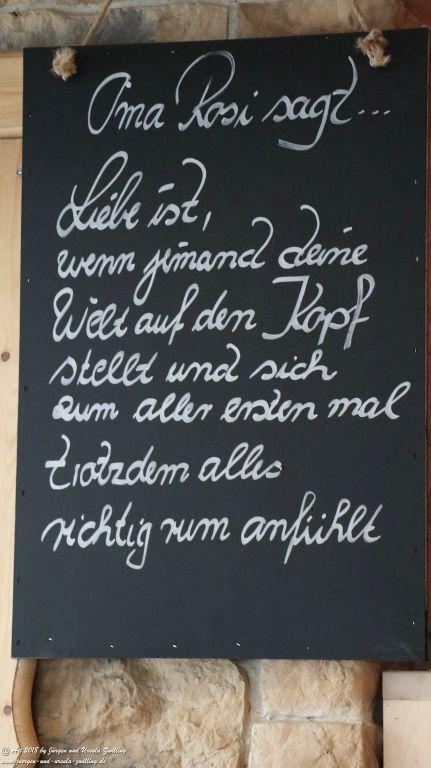 Oma Rosi sagt...
Liebe ist,
wenn jemand deine
Welt auf den Kopf
stellt und sich
zum aller ersten mal
trotzdem alles
richtig rum anfühlt
© Art 2018 by Jürgen und Ursula Zwilling
www.juergen-und-ursula-zwilling.de